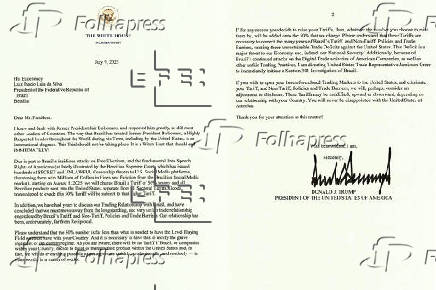 THE WHITE HOUSE
WASHINGTON
July 9, 2025
His Excellency
Luiz Inácio Lula da Silva
President of the Federative Republic of
Brazil
Brasília
Dear Mr. President:
I knew and dealt with former President Jair Bolsonaro, and respected him greatly, as did most
other Leaders of Countries. The way that Brazil has treated former President Bolsonaro, a Highly
Respected Leader throughout the World during his Term, including by the United States, is an
international disgrace. This Trial should not be taking place. It is a Witch Hunt that should end
IMMEDIATELY!
Due in part to Brazil's insidious attacks on Free Elections, and the fundamental Free Speech
Rights of Americans
hundreds of SECRET and UNLAWFUL Censorship Orders to U.S. Social Media platforms,
threatening them with Millions of Dollars in Fines and Eviction from the Brazilian Social Media
market), starting on August 1, 2025, we will charge Brazil a Tariff of 50% on any and all
Brazilian products sent into the United States, separate from all Sectoral Tariffs. Goods
transshipped to evade this 50% Tariff will be subject to that higher Tariff.
In addition, we have had years to discuss our Trading Relationship with Brazil, and have
concluded that we must move away from the longstanding, and very unfair trade relationship
engendered by Brazil's Tariff, and Non-Tariff, Policies and Trade Barriers. Our relationship has
been, unfortunately, far from Reciprocal.
Please understand that the 50% number is far less than what is needed to have the Level Playing
Field we must have with your Country. And it is necessary to have this to rectify the grave
2
If for any reason you decide to raise your Tariffs, then, whatever the number you choose to raise
them by, will be added onto the 50% that we charge. Please understand that these Tariffs are
necessary to correct the many years of Brazil's Tariff, and Non-Tariff, Policies and Trade
Barriers, causing these unsustainable Trade Deficits against the United States. This Deficit is a
major threat to our Economy and, indeed, our National Security! Additionally, because of
Brazil's continued attacks on the Digital Trade activities of American Companies, as well as
other unfair Trading Practices, I am directing United States Trade Representative Jamieson Greer
to immediately initiate a Section 301 Investigation of Brazil.
If you wish to open your heretofore closed Trading Markets to the United States, and eliminate
your Tariff, and Non-Tariff, Policies and Trade Barriers, we will, perhaps, consider an
adjustment to this letter. These Tariffs may be modified, upward or downward, depending on
our relationship with your Country. You will never be disappointed with The United States of
America.
Thank you for your attention to this matter!
Sincerely,
DONALD J. TRUMP
PRESIDENT OF THE UNITED STATES OF AMERICA
Folhapress
EFE
Folhapress
Folhapress
EFE
Folhapress
Folhapress